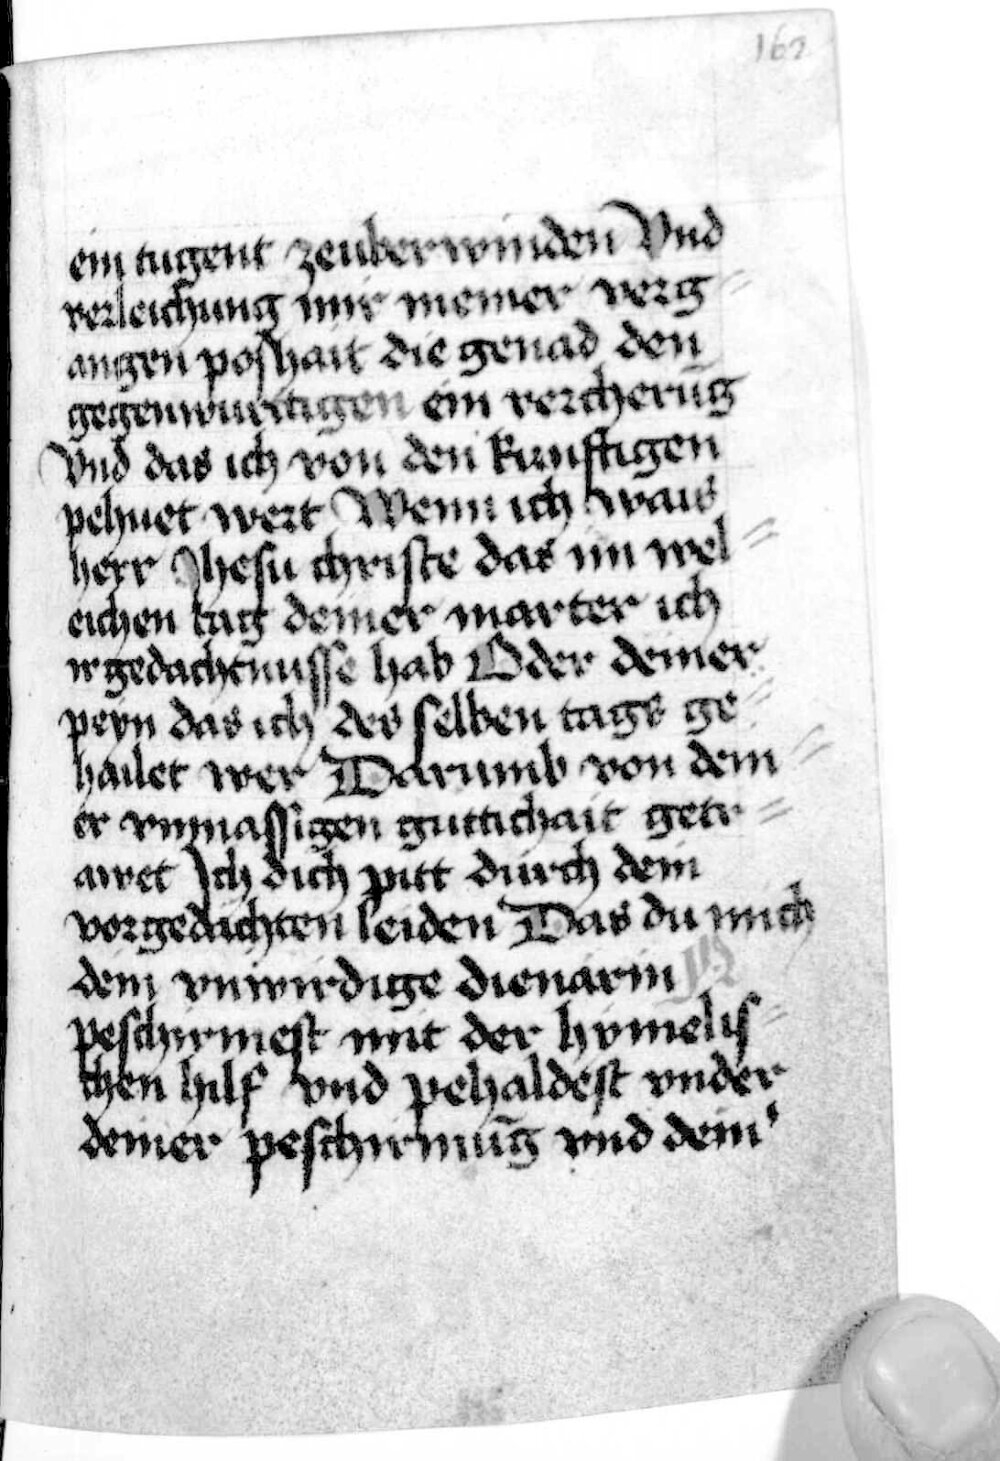 162
ein tugent zeuberwinden Vnd
verleichung mir meiner verg=
angen poshait die genad den
gegenwurttigen ein vercherūg
Vnd das ich von den kunftigen
pehuet wert Wenn ich wais
herr Jhesu christe das im wel=
eichen tag deiner marter ich
ir gedachtnusse hab Oder deiner
peyn das ich des selben tags ge=
hailet wer Darumb von dein=
er vnmassigen guttichait getr=
awet Ich dich pitt durch dein
vorgedachten leiden Das du mich
dein vnwirdige dienarin N
peschirmest mit der hymelis=
chen hilf vnd pehaldest vnder
deiner peschirmūg vnd dein'